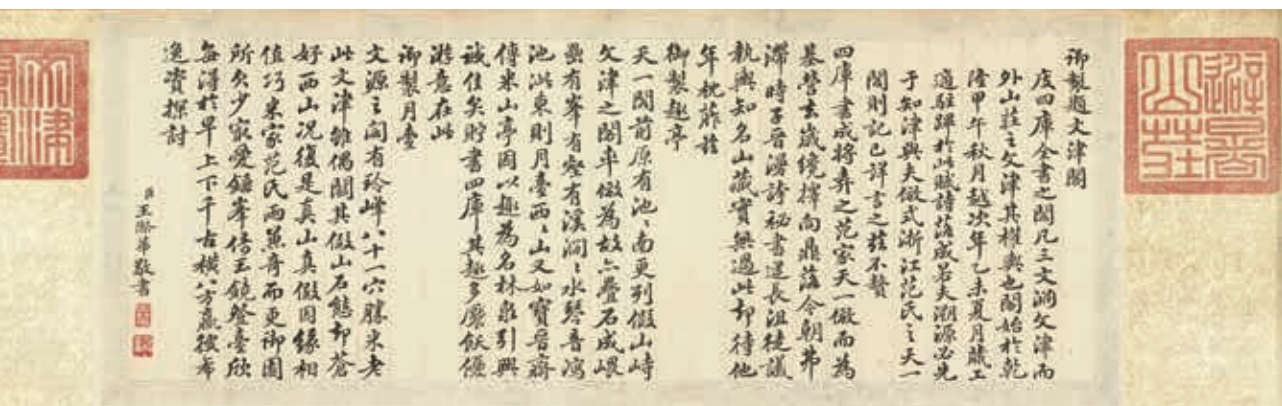 避暑山莊
御製題文津閣
庋四庫全書之閣凡三文淵文津而
外山莊之文津其權輿也閣始於乾
隆甲午秋月越次年乙未夏月蕆工
適駐蹕於此賦詩落成若夫溯源必先
于知津與夫倣式浙江范氏之天一
閣則記已詳言之茲不贅
四庫書成將弆之范家天一倣而為
基營去歲繞擇向鼎落今朝弗
滯時子晉漫誇秘書逮長沮徒議
執輿知名山藏實無過此却待他
年枕葄
御製趣亭
天一閣前原有池池南更列假山峙
文津之閣率倣為故亦疊石成峞
礨有峯有壑有溪澗澗水琴音瀉
池沚東則月臺西西山又如寶晉齋
傳米山亭因以趣為名林泉引興
誠佳矣貯書四庫其趣多饜飫優
游意在此
御製月臺
文源之閣有玲峰八十一穴勝米老
此文津雖偶闕其假山石態却蒼
好西山況復是真山真假因緣相
值巧米家范氏兩兼奇而更御園
所欠少最愛鎌峯倚玉鏡磬臺欣
每得於早上下千古橫八方嬴彼希
逸資探討
臣王際華敬書
文津閣寶